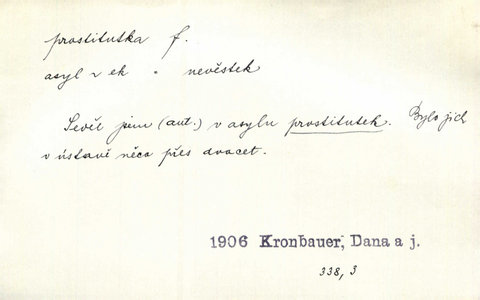 prostitutka f.
asyl ~ ek • nevěstek
Seděl jsem (aut.) v asylu prostitutek. Bylo jich
v ústavě něco přes dvacet.
1906 Kronbauer, Dana a j.
338, 3